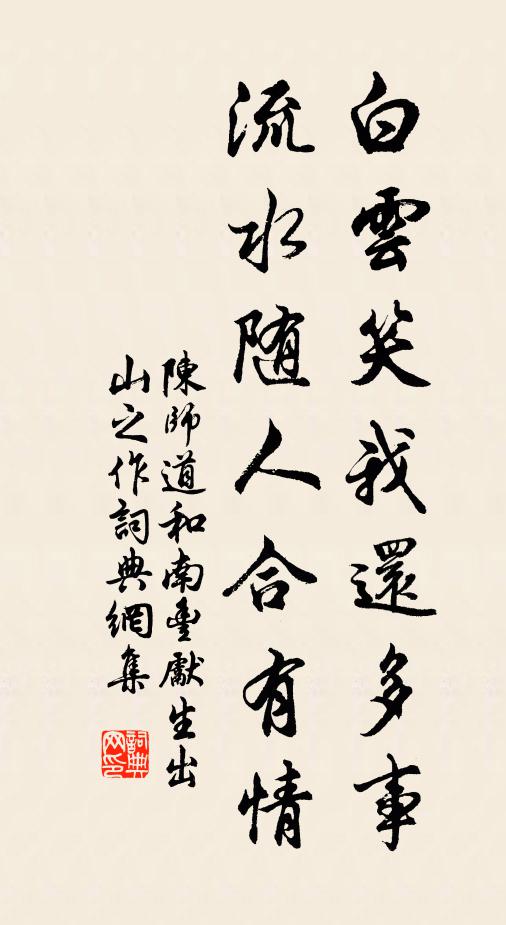 白雲笑我還多事
流水随人合有情
陳師道和南豐獻生出
山之作詞典網集
詞典网印